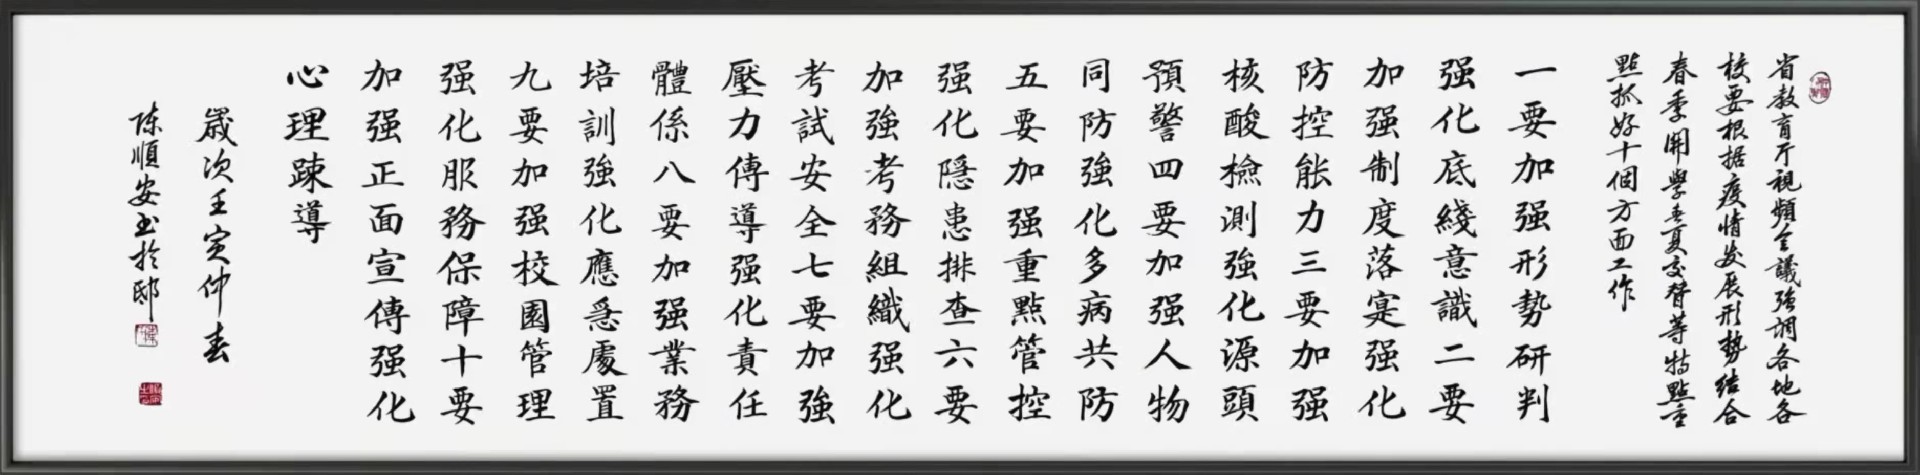 省教育厅視頻会議强調各地各
校要根据疫情发展形勢結合
春季開學春夏交替等特點重
點抓好十個方面工作
一要加强形勢研判
强化底綫意識二要
加强制度落寔强化
防控能力三要加强
核酸檢測强化源頭
預警四要加强人物
同防強化多病共防
五要加强重點管控
强化隱患排查六要
加強考務組織强化
考試安全七要加強
壓力傳導强化責任
體係八要加强業務
培訓強化應急處置
九要加强校園管理
强化服務保障十要
加强正面宣傳强化
心理踈導
歲次壬寅仲春
陈順安书於邸